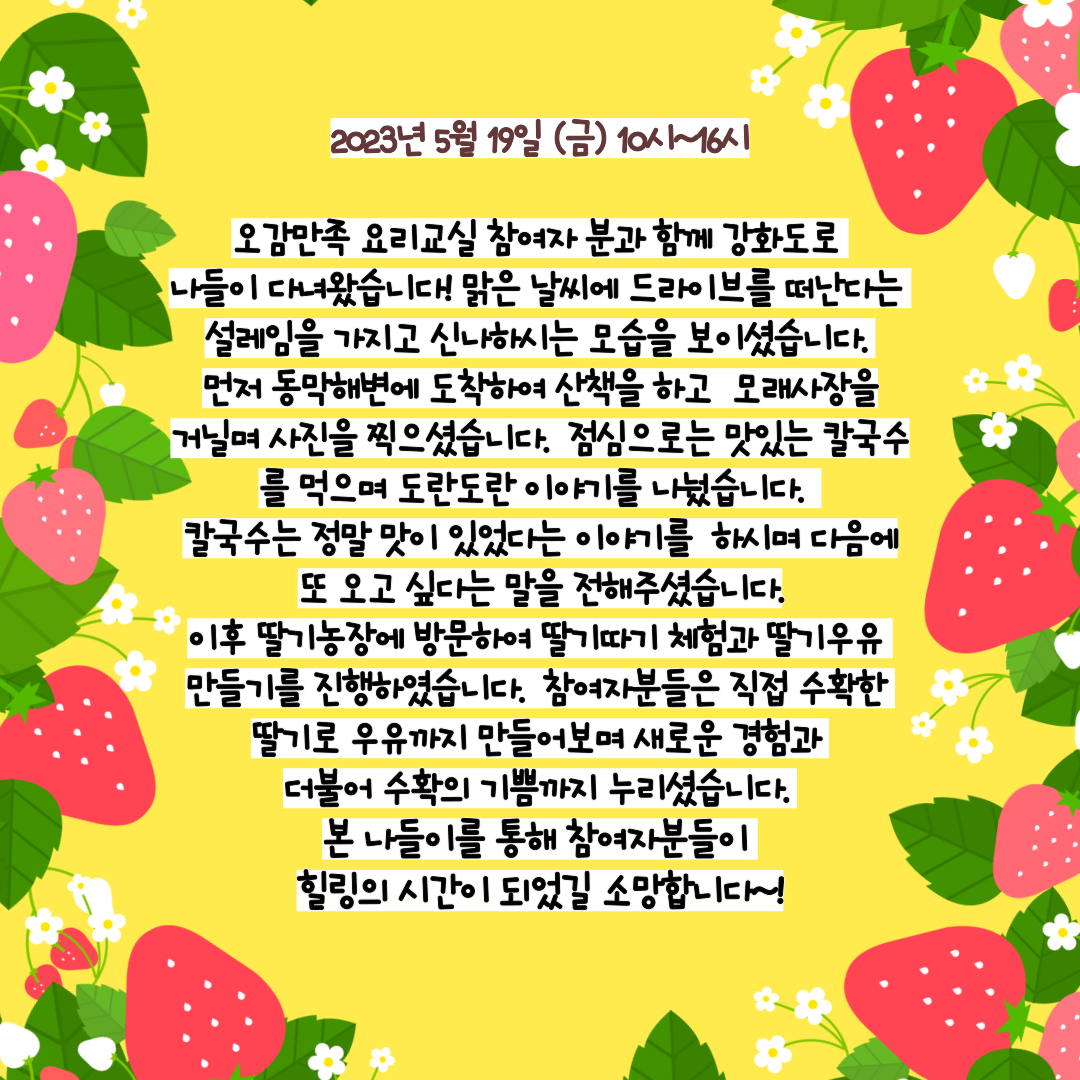 2023년 5월 19일 (금) 10시~16시
오감만족 요리교실 참여자 분과 함께 강화도로
나들이 다녀왔습니다! 맑은 날씨에 드라이브를 떠난다는
설레임을 가지고 신나하시는 모습을 보이셨습니다.
먼저 동막해변에 도착하여 산책을 하고 모래사장을
거닐며 사진을 찍으셨습니다. 점심으로는 맛있는 칼국수
를 먹으며 도란도란 이야기를 나눴습니다.
칼국수는 정말 맛이 있었다는 이야기를 하시며 다음에
또 오고 싶다는 말을 전해주셨습니다.
이후 딸기농장에 방문하여 딸기따기 체험과 딸기우유
만들기를 진행하였습니다. 참여자분들은 직접 수확한
딸기로 우유까지 만들어보며 새로운 경험과
더불어 수확의 기쁨까지 누리셨습니다.
본 나들이를 통해 참여자분들이
힐링의 시간이 되었길 소망합니다~!